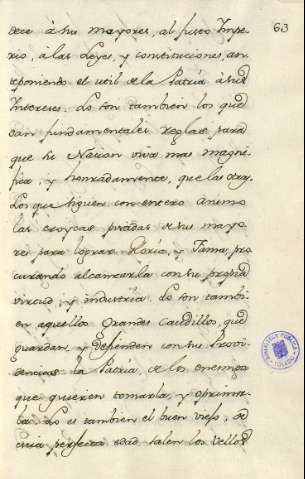 63
dece à sus mayores, al justo Impe-
rio, à las Leyes, y constituciones, an
teponiendo el util de la Patria à sus
Intereses. Lo son tambien los que
dan fundamentales Reglas para
que su Nacion viva mas magni-
fica, y honradamente, que las otras
Los que siguen con entero animo
las pisadas de sus mayo
res para lograr Gloria, y Fama, pro
curando alcanzarla con su propia
virtud, y industria. Lo son tambi-
en aquellos grandes Caudillos, que
guardan, y defienden con su Provi-
dencia la Patria, de los enemigos
que quieren tomarla, y oprimir-
la. Lo es tambien el buen viejo, de
cuia perfecta edad salen los
BIBLIOTECA PUBLICA
TOLEDO